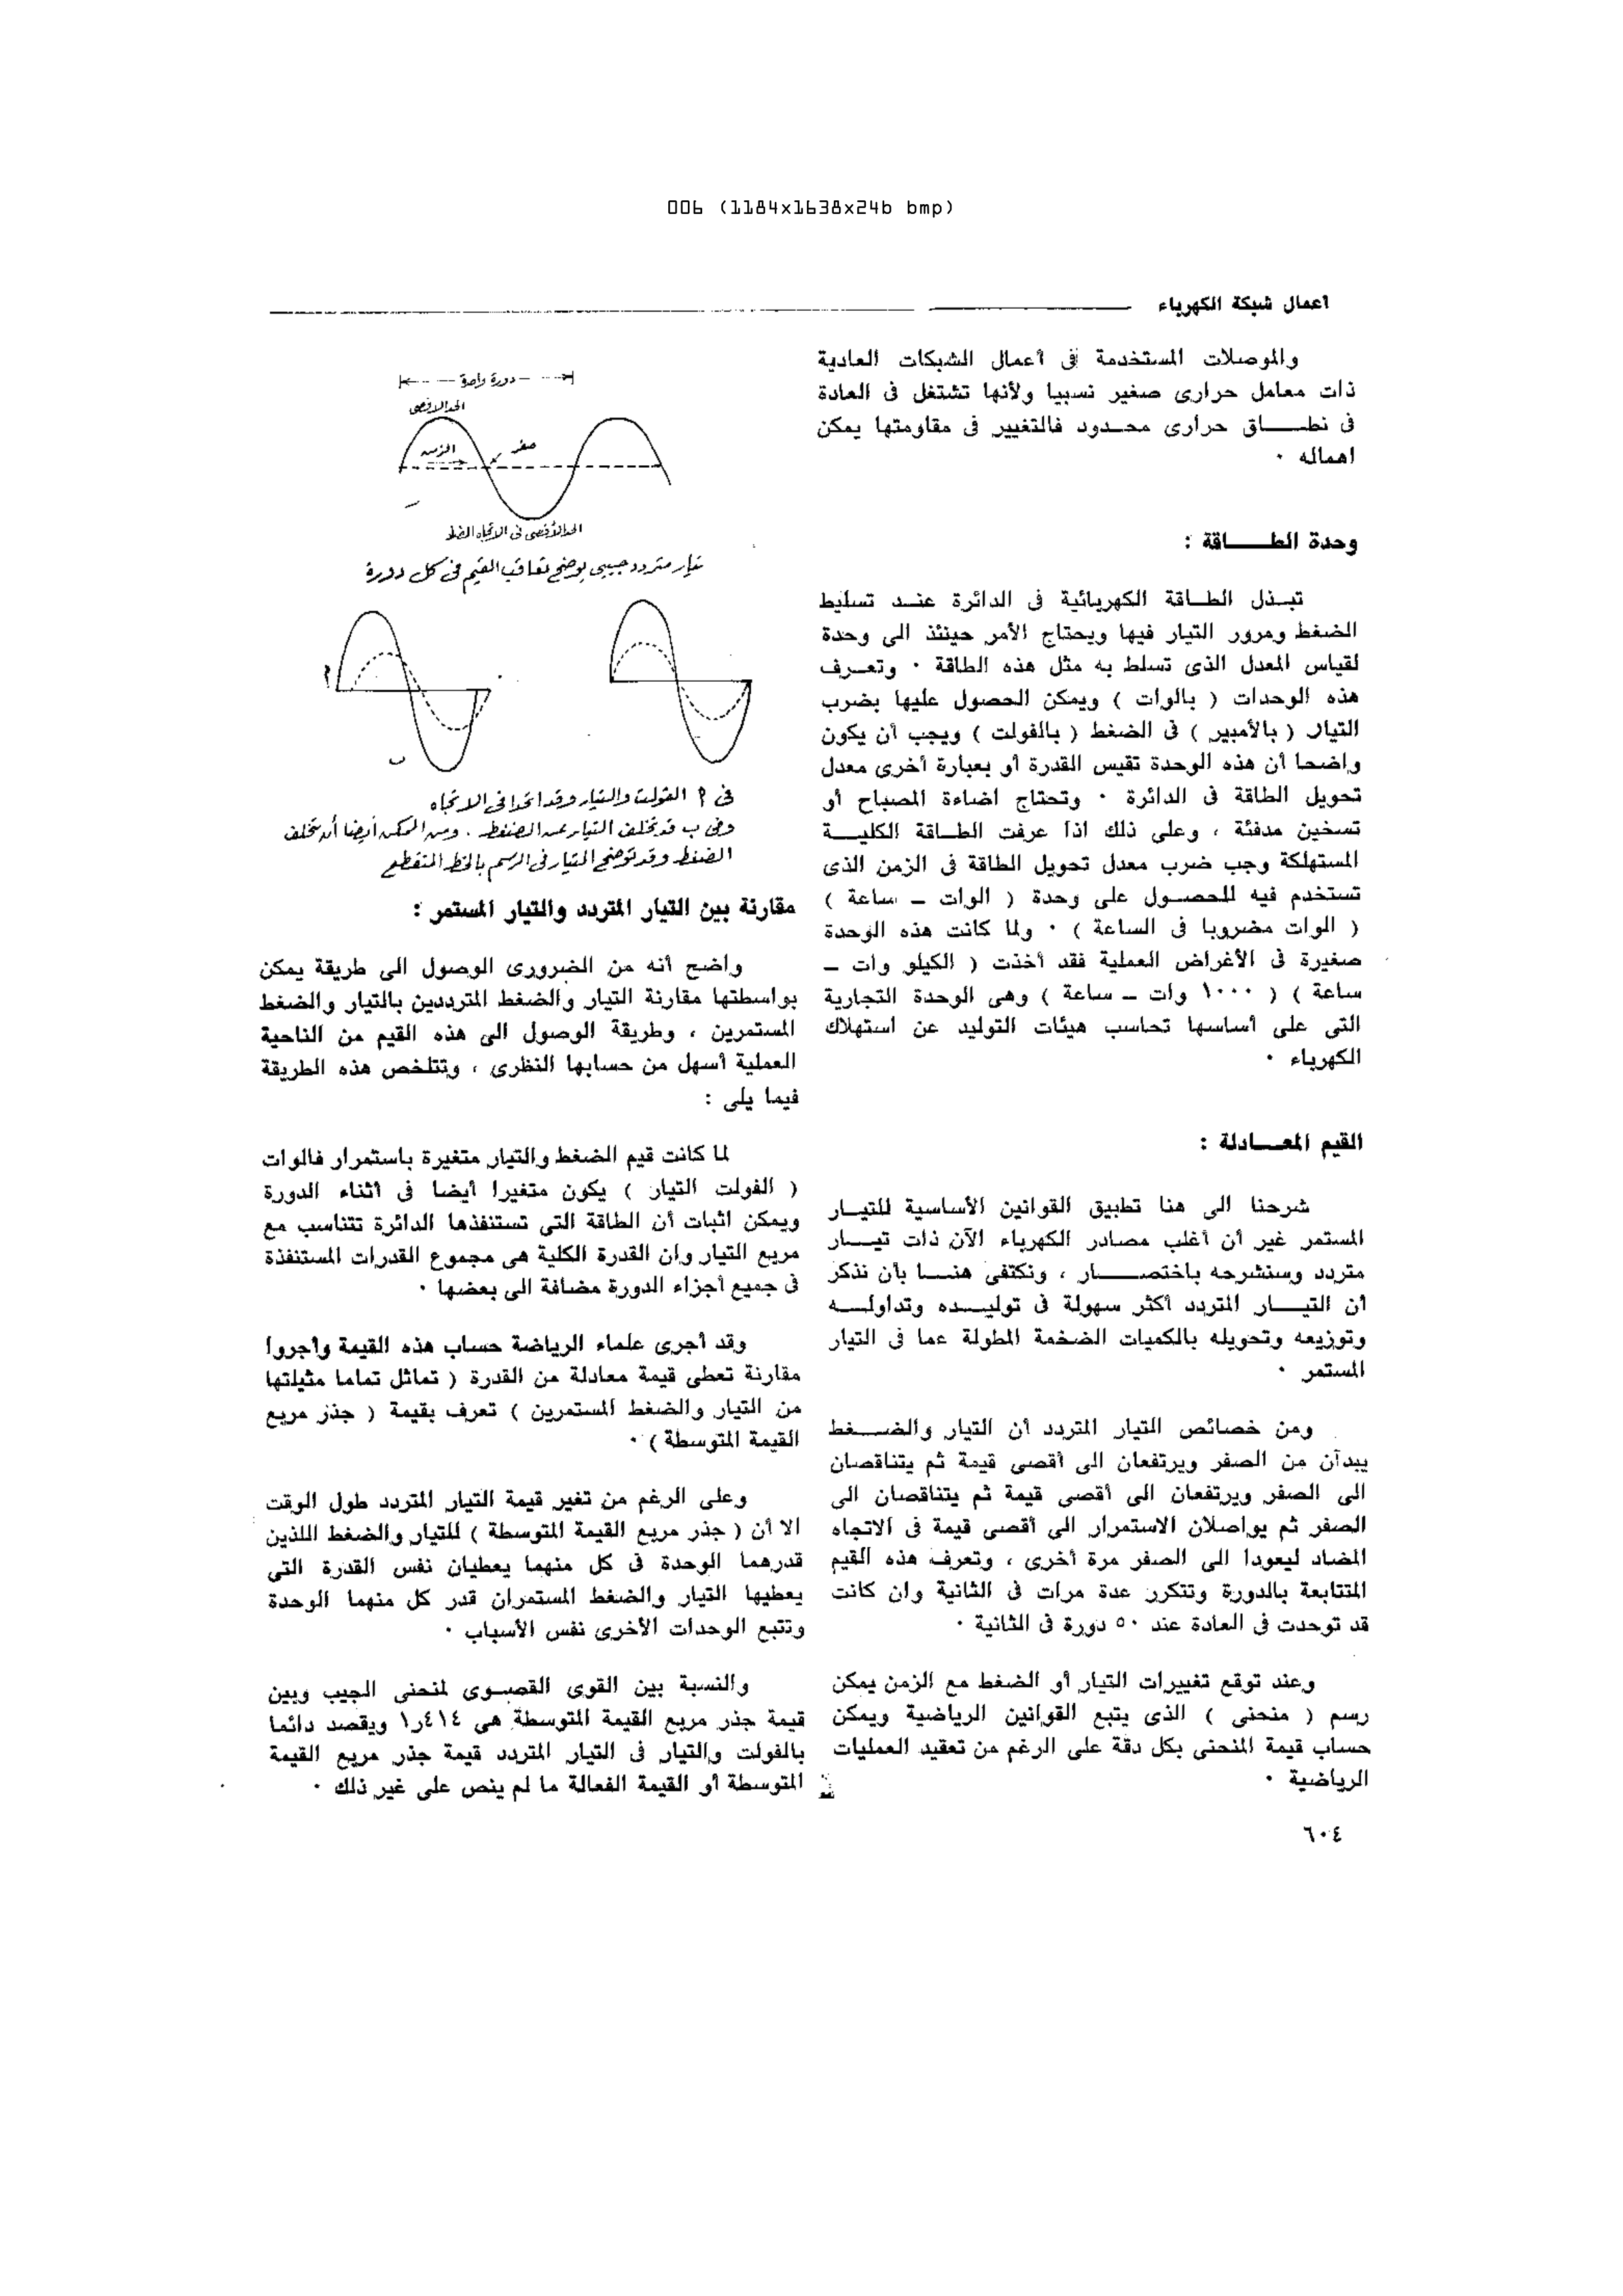 006 (1184x1638x24b bmp)
أعمال شبكة الكهرباء
والموصلات المستخدمة فى أعمال الشبكات العادية
ذات معامل حرارى صغير نسبيا ولأنها تشتغل فى العادة
فى نطـــاق حرارى محـدود فالتغيير فى مقاومتها يمكن
اهماله ٠
وحدة الطـــاقة :
تبـذل الطـاقة الكهربائية فى الدائرة عنـد تسليط
الضغط ومرور التيار فيها ويحتاج الأمر حينئذ الى وحدة
لقياس المعدل الذى تسلط به مثل هذه الطاقة ٠ وتعـرف
هذه الوحدات ( بالوات ) ويمكن الحصول عليها بضرب
التيار ( بالأمبير ) فى الضغط ( بالفولت ) ويجب أن يكون
واضحا أن هذه الوحدة تقيس القدرة أو بعبارة أخرى معدل
تحويل الطاقة فى الدائرة ٠ وتحتاج اضاءة المصباح أو
تسخين مدفئة ، وعلى ذلك اذا عرفت الطـاقة الكليـة
المستهلكة وجب ضرب معدل تحويل الطاقة فى الزمن الذى
تستخدم فيه للحصـول على وحدة ( الوات ـ ساعة )
( الوات مضروبا فى الساعة ) ٠ ولما كانت هذه الوحدة
صغيرة فى الأغراض العملية فقد أخذت ( الكيلو وات ـ
ساعة ) ( ١٠٠٠ وات ـ ساعة ) وهى الوحدة التجارية
التى على أساسها تحاسب هيئات التوليد عن استهلاك
الكهرباء ٠
القيم المعـــادلة :
شرحنا الى هنا تطبيق القوانين الأساسية للتيـار
المستمر غير أن أغلب مصادر الكهرباء الآن ذات تيـــار
متردد وسنشرحه باختصـــار ، ونكتفى هنــا بأن نذكر
أن التيــار المتردد أكثر سهولة فى توليـده وتداولـه
وتوزيعه وتحويله بالكميات الضخمة المطولة عما فى التيار
المستمر ٠
ومن خصائص التيار المتردد أن التيار والضــغط
يبدآن من الصفر ويرتفعان الى أقصى قيمة ثم يتناقصان
الى الصفر ويرتفعان الى أقصى قيمة ثم يتناقصان الى
الصفر ثم يواصلان الاستمرار الى أقصى قيمة فى الاتجاه
المضاد ليعودا الى الصفر مرة أخرى ، وتعرف هذه القيم
المتتابعة بالدورة وتتكرر عدة مرات فى الثانية وان كانت
قد توحدت فى العادة عند ٥٠ دورة فى الثانية ٠
وعند توقع تغييرات التيار أو الضغط مع الزمن يمكن
رسم ( منحنى ) الذى يتبع القوانين الرياضية ويمكن
حساب قيمة المنحنى بكل دقة على الرغم من تعقيد العمليات
الرياضية ٠
دورة واحدة
الحد الاقصى
الزمن
صفر
الحد الأقصى فى الاتجاه المضاد
تيار متردد جيبى يوضح تعاقب القيم فى كل دورة
أ
ب
فى أ الفولت والتيار وقد اتحدا فى الاتجاه
وفى ب قد تخلف التيار عن الضغط . ومن الممكن أيضا أن يتخلف
الضغط وقد توضح التيار فى الرسم بالخط المتقطع
مقارنة بين التيار المتردد والتيار المستمر :
واضح أنه من الضرورى الوصول الى طريقة يمكن
بواسطتها مقارنة التيار والضغط المترددين بالتيار والضغط
المستمرين ، وطريقة الوصول الى هذه القيم من الناحية
العملية أسهل من حسابها النظرى ، وتتلخص هذه الطريقة
فيما يلى :
لما كانت قيم الضغط والتيار متغيرة باستمرار فالوات
( الفولت التيار ) يكون متغيرا أيضا فى أثناء الدورة
ويمكن اثبات أن الطاقة التى تستنفذها الدائرة تتناسب مع
مربع التيار وان القدرة الكلية هى مجموع القدرات المستنفذة
فى جميع أجزاء الدورة مضافة الى بعضها ٠
وقد أجرى علماء الرياضة حساب هذه القيمة وأجروا
مقارنة تعطى قيمة معادلة من القدرة ( تماثل تماما مثيلتها
من التيار والضغط المستمرين ) تعرف بقيمة ( جذر مربع
القيمة المتوسطة ) ٠
وعلى الرغم من تغير قيمة التيار المتردد طول الوقت
الا أن ( جذر مربع القيمة المتوسطة ) للتيار والضغط اللذين
قدرهما الوحدة فى كل منهما يعطيان نفس القدرة التى
يعطيها التيار والضغط المستمران قدر كل منهما الوحدة
وتتبع الوحدات الأخرى نفس الأسباب ٠
والنسبة بين القوى القصـوى لمنحنى الجيب وبين
قيمة جذر مربع القيمة المتوسطة هى ١٫٤١٤ ويقصد دائما
بالفولت والتيار فى التيار المتردد قيمة جذر مربع القيمة
المتوسطة أو القيمة الفعالة ما لم ينص على غير ذلك ٠
٦٠٤